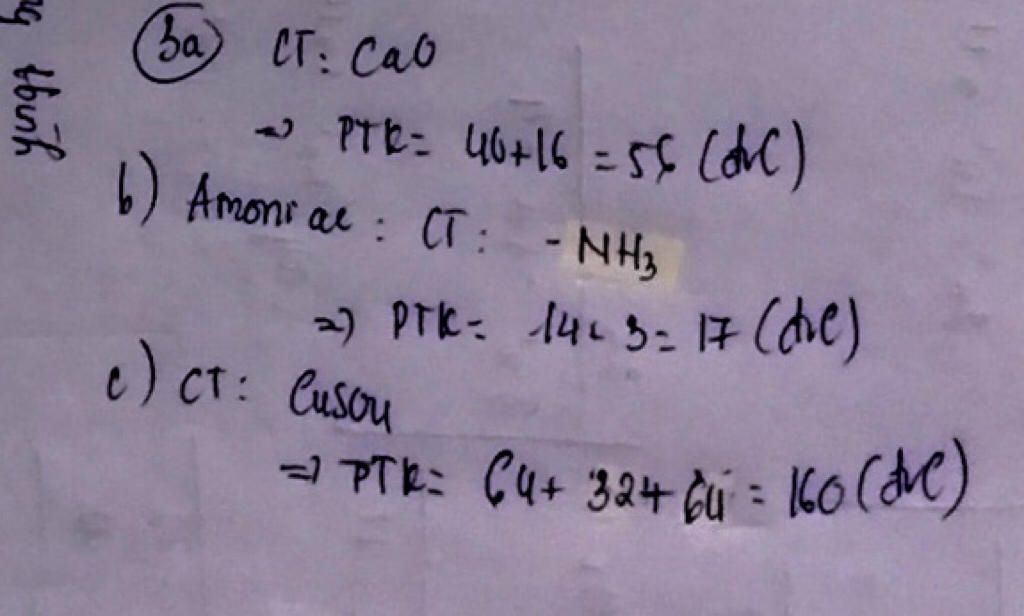 3a) CT: CaO
=> PTK = 40+16 = 56 (đvC)
b) Amoniac : CT: - NH3
=> PTK = 14+3 = 17 (đvC)
c) CT: CuSO4
=> PTK = 64+ 32+ 64 = 160 (đvC)